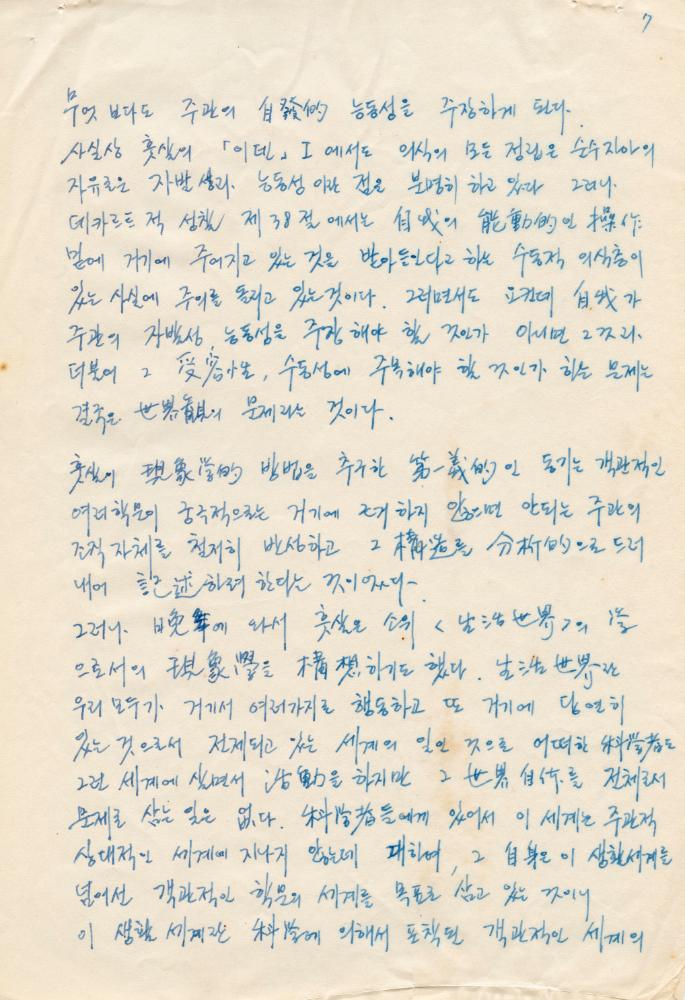 7
무엇 보다도 주관의 自發的 능동성을 주장하게 된다.
사실상 훗설의 「이덴」I 에서도 의식의 모든 정립은 순수자아의
자유로운 자발성과. 능동성 이라는 점을 분명히 하고 있다 그러나.
데카르트 적 성찰 제 38 절 에서는 自我의 能動的인 操作
밑에 거기에 주어지고 있는 것을 받아들인다고 하는 수동적 의식층이
있는 사실에 주의를 돌리고 있는 것이다. 그러면서도 요컨데 自我가
주관의 자발성, 능동성을 주장해야 할 것인가 아니면 그것과.
더불어 그 受容性, 수동성에 주목해야 할 것인가 하는 문제는
결국은 世界觀의 문제라는 것이다.
훗설이 現象学的 방법을 추구한 第一義的인 동기는 객관적인
여러학문이 궁극적으로는 거기에 근거하지 않으면 안되는 주관의
조직 자체를 철저히 반성하고 그 構造를 分析的으로 드러
내어 記述하려 한다는 것이었다.
그러나. 晩年에 와서 훗설은 소위 <生活世界>의 学
으로서의 現象學을 構想하기도 했다. 生活世界란
우리 모두가. 거기서 여러가지로 행동하고 또 거기에 당연히
있는 것으로서 전제되고 있는 세계의 일인 것으로 어떠한 科学者도
그런 세계에 살면서 活動을 하지만 그 世界自体를 전체로서
문제로 삼는 일은 없다. 科学者들에게 있어서 이 세계는 주관적
상대적인 세계에 지나지 않는데 대하여, 그 自身은 이 생활세계를
넘어선 객관적인 학문의 세계를 목표로 삼고 있는 것이니
이 생활 세계란 科学에 의해서 포착된 객관적인 세계의